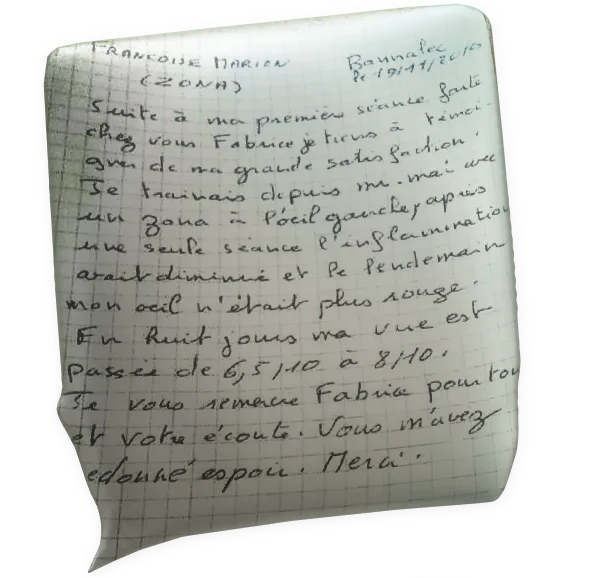 FRANCOISE MARION Bannalec
(ZONA) le 19/11/2010
Suite à ma première séance faite
chez vous Fabrice je tiens à témoi-
gner de ma grande satisfaction.
Je trainais depuis mi-mai avec
un zona à l'oeil gauche, après
une seule séance l'inflammation
avait diminué et le lendemain
mon oeil n'était plus rouge.
En huit jours ma vue est
passée de 6,5/10 à 8/10.
Je vous remercie Fabrice pour tou
et votre écoute. Vous m'avez
edonné espoir. Merci.